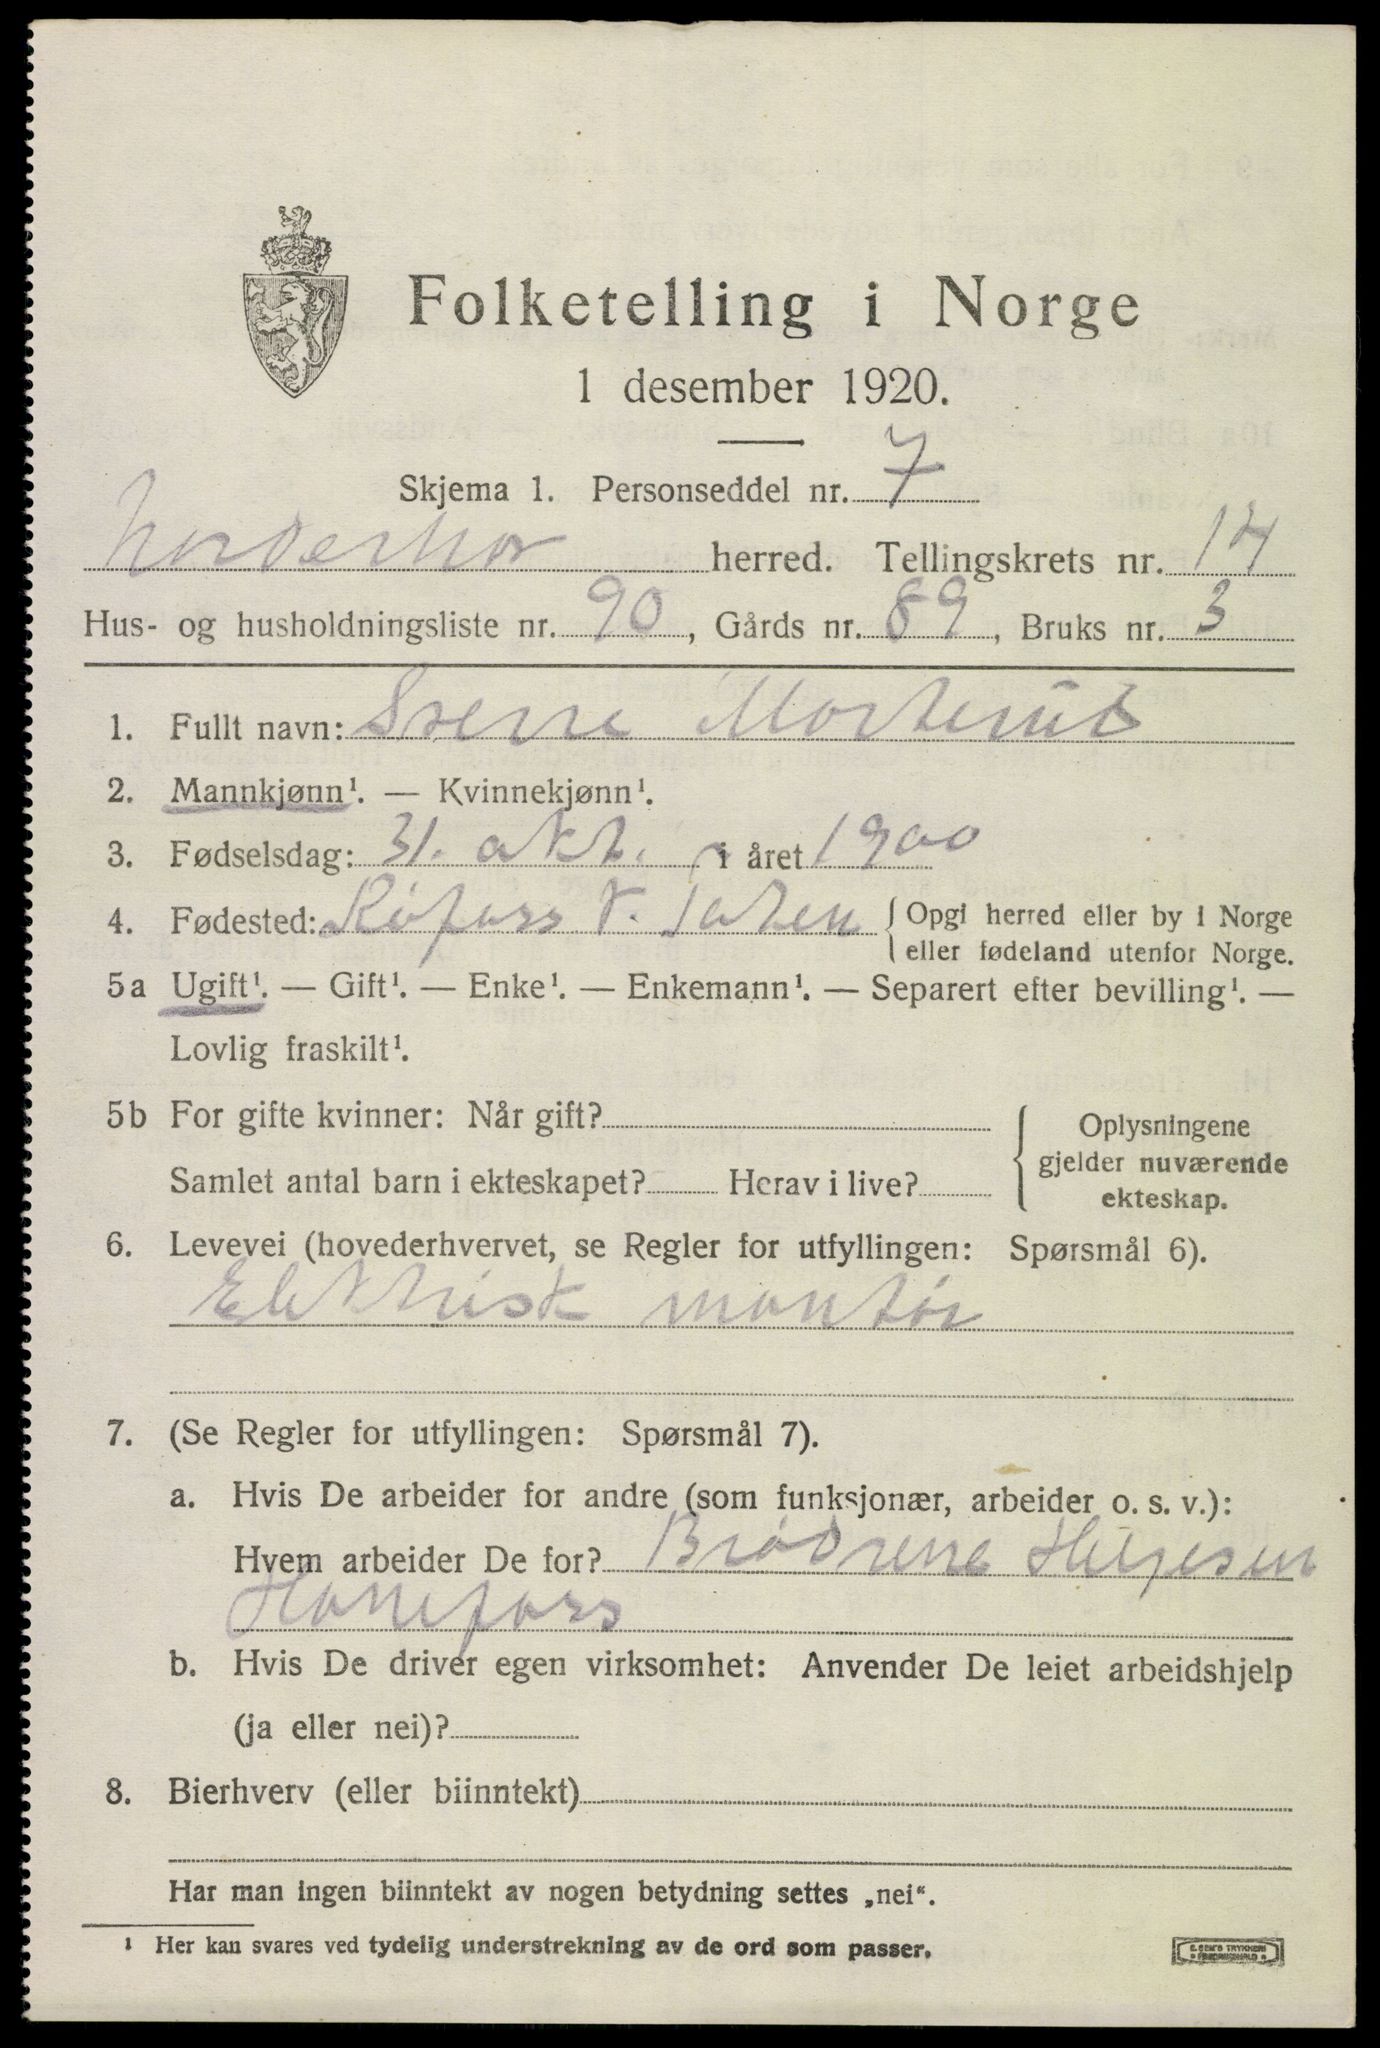 Folketelling i Norge
1 desember 1920.
Skjema 1. Personseddel nr. 7
Norderhov herred. Tellingskrets nr. 14
Hus- og husholdningsliste nr. 90, Gårds nr. 89, Bruks nr. 3
1. Fullt navn: Sverre
2. Mannkjønn¹. — Kvinnekjønn¹.
3. Fødselsdag: 31. okt. i året 1900
4. Fødested: { Opgi herred eller by i Norge
eller fødeland utenfor Norge.
5a Ugift¹. — Gift¹. — Enke¹. — Enkemann¹. — Separert efter bevilling¹. —
Lovlig fraskilt¹.
5b For gifte kvinner: Når gift? { Oplysningene
gjelder nuværende
Samlet antal barn i ekteskapet? Herav i live?
ekteskap.
6. Levevei (hovederhvervet, se Regler for utfyllingen: Spørsmål 6).
Elektrisk montør
7. (Se Regler for utfyllingen: Spørsmål 7).
a. Hvis De arbeider for andre (som funksjonær, arbeider o. s. v.):
Hvem arbeider De for? Brødrene Helgesen
Hønefoss
b. Hvis De driver egen virksomhet: Anvender De leiet arbeidshjelp
(ja eller nei)?
8. Bierhverv (eller biinntekt)
Har man ingen biinntekt av nogen betydning settes „nei“.
¹ Her kan svares ved tydelig understrekning av de ord som passer.
E. SEM'S TRYKKERI
FREDRIKSHALD